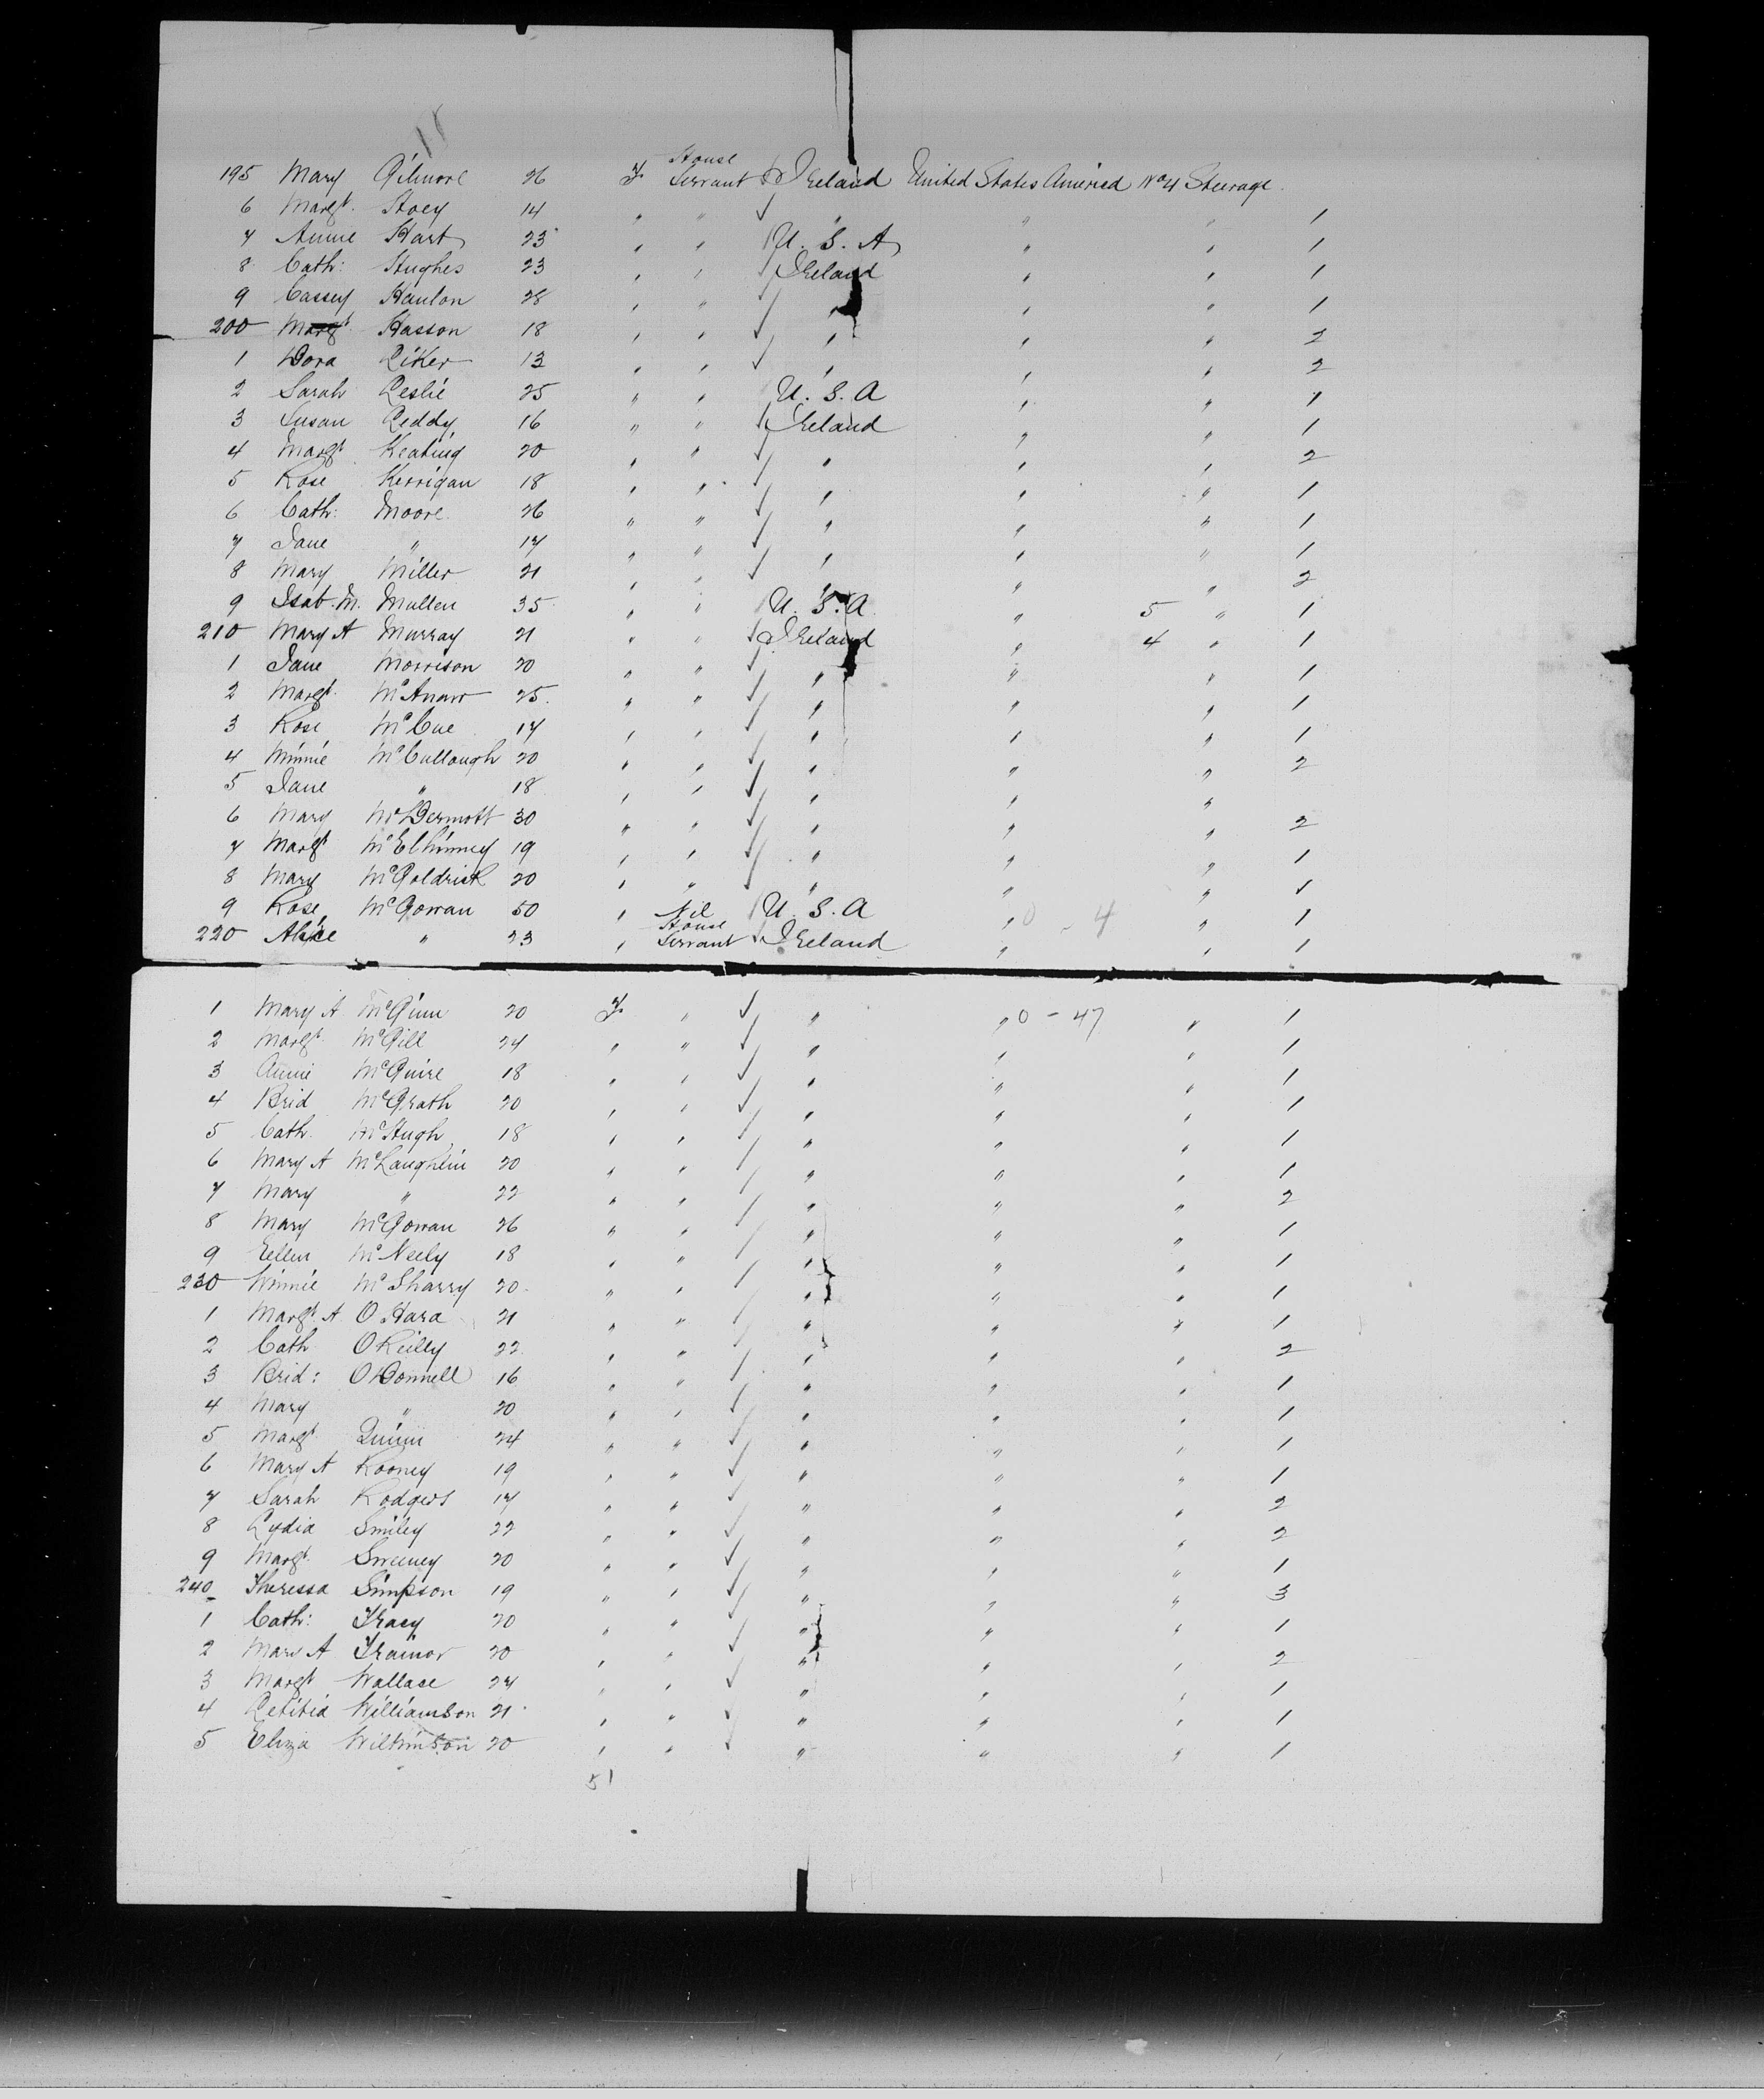 18
195 Mary Gilmore 26 F House Servant Ireland United States America No 4 Steerage
6 Margt. Stoey 14 " " " " " 1
7 Annie Hart 23 " " U.S.A " " 1
8 Cath: Hughes 23 " " Ireland " " 1
9 Cassey Hanlon 28 " " " " " 1
200 Margt. Hasson 18 " " " " " 2
1 Dora Liker 13 " " " " " 2
2 Sarah Leslie 25 " " U.S.A " " 1
3 Susan Leddy 16 " " Ireland " " 1
4 Margt Keating 20 " " " " " 2
5 Rose Kerrigan 18 " " " " " 1
6 Cath: Moore 26 " " " " " 1
7 Jane " 17 " " " " " 1
8 Mary Miller 21 " " " " " 2
9 Isab. M. Mullen 35 " " U.S.A " 5 " 1
210 Mary A Murray 21 " " Ireland " 4 " 1
1 Jane Morrison 20 " " " " " 1
2 Margt. 25 " " " " " 1
3 Rose McCue 17 " " " " " 1
4 Minnie McCullough 20 " " " " " 2
5 Jane " 18 " " " " "
6 Mary McDermott 30 " " " " " 2
7 Margt McElhinney 19 " " " " " 1
8 Mary McGoldrick 20 " " " " " 1
9 Rose McGowan 50 " Nil U.S.A " 0 - 4 " 1
220 Alice " 23 " House Servant Ireland " " 1
1 Mary A McGinn 20 F " " " 0 - 47 " 1
2 Margt. McGill 24 " " " " " 1
3 Annie McGuire 18 " " " " " 1
4 Brid McGrath 20 " " " " " 1
5 Cath. McHugh 18 " " " " " 1
6 Mary A McLaughlin 20 " " " " " 1
7 Mary " 22 " " " " " 2
8 Mary McGowan 26 " " " " " 1
9 Ellen McNeely 18 " " " " " 1
230 Winnie McSharry 20 " " " " " 1
1 Margt. A O'Hara 21 " " " " " 1
2 Cath O'Reilly 22 " " " " " 2
3 Brid: O'Donnell 16 " " " " " 1
4 Mary " 20 " " " " " 1
5 Margt Quinn 24 " " " " " 1
6 Mary A Rooney 19 " " " " " 1
7 Sarah Rodgers 17 " " " " " 2
8 Lydia Smiley 22 " " " " " 2
9 Margt. Sweeney 20 " " " " " 1
240 Theressa Simpson 19 " " " " " 3
1 Cath: Tracy 20 " " " " " 1
2 Mary A Trainor 20 " " " " " 2
3 Margt Wallace 24 " " " " " 1
4 Letitia Williamson 21 " " " " " 1
5 Eliza Wilkinson 20 " " " " " 1
51